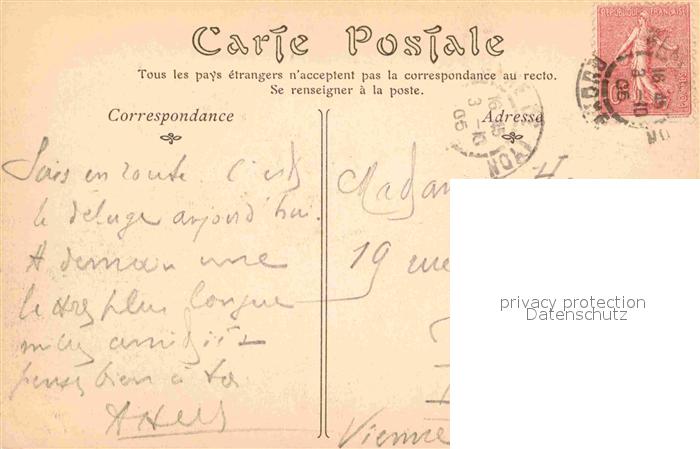 Carte Postale
Tous les pays étrangers n'acceptent pas la correspondance au recto.
Se renseigner à la poste.
Correspondance
Adresse
RÉPUBLIQUE FRANÇAISE
16 45
3 -10
05
LYON
16 45
3 -10
05
en route C'est
le déluge aujourd'hui.
A demain une
plus longue
mille amitiés
bien à
Madam
19 rue
Vienne
privacy protection
Datenschutz